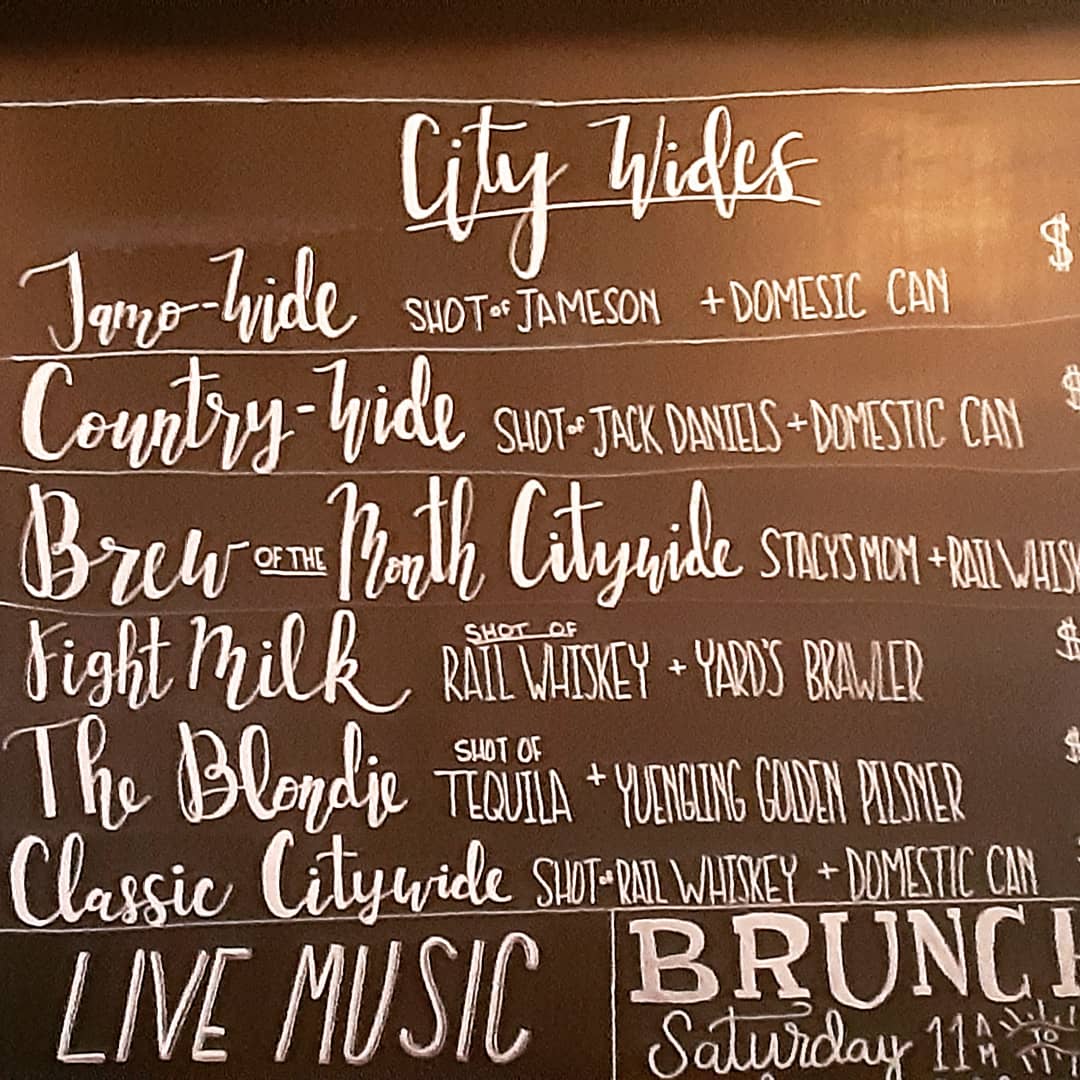 City Wides
$
Jamo-Wide SHOT of JAMESON + DOMESIC CAN
$
Country-Wide SHOT of JACK DANIELS + DOMESTIC CAN
Brew OF THE Month Citywide STACYS MOM + RAIL WHISK
$
Fight Milk SHOT OF RAIL WHISKEY + YARD'S BRAWLER
$
The Blondie SHOT OF TEQUILA + YUENGLING GOLDEN PILSNER
Classic Citywide SHOT of RAIL WHISKEY + DOMESTIC CAN
LIVE MUSIC
BRUNCH
Saturday 11AM TO